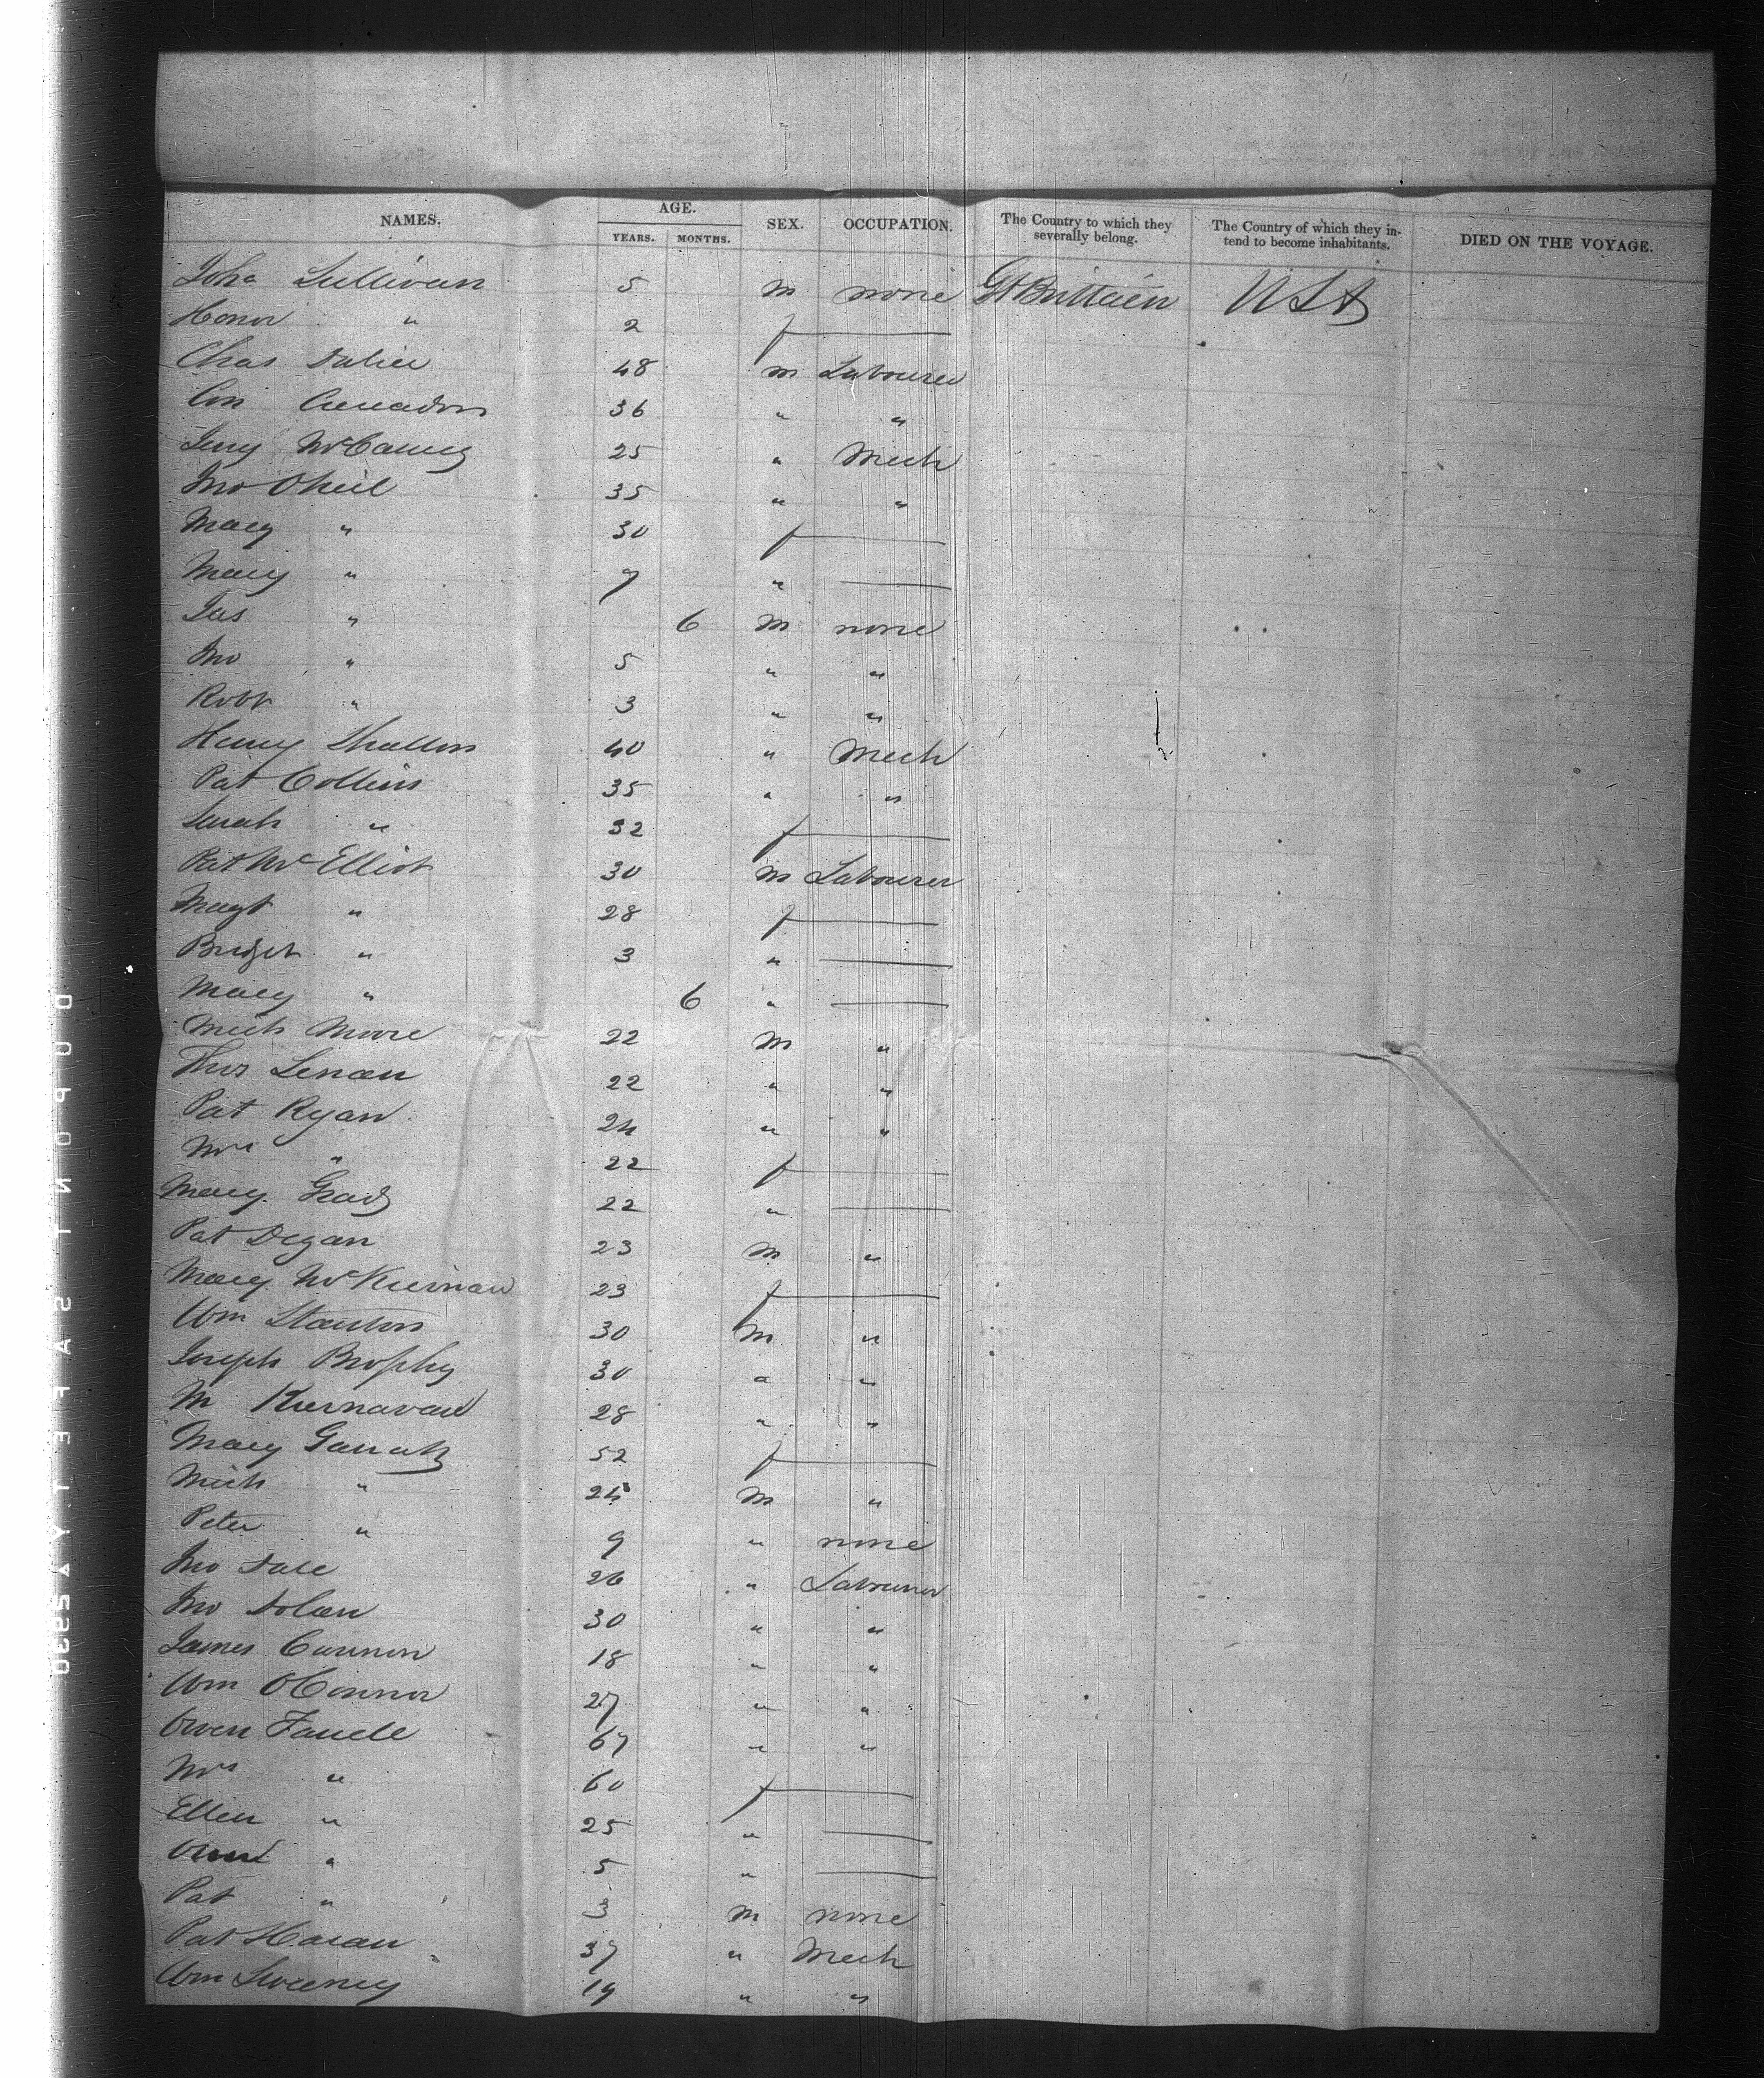 NAMES. AGE. SEX. OCCUPATION. The Country to which they severally belong. The Country of which they intend to become inhabitants. DIED ON THE VOYAGE.
YEARS. MONTHS.
John Sullivan 5 m none Gt Brittain USA
Honor " 2 f
Chas 48 m Labourer
Con 36 " "
Jerry McCauley 25 " Mech
Jno ONeil 35 " "
Mary " 30 f
Mary " 7 "
Jas " 6 m none
Jno " 5 " "
Robt " 3 " "
Henry Shallon 40 " Mech
Pat Collins 35 " "
Sarah " 32 f
Pat McElliot 30 m Labourer
Magt " 28 f
Bridget " 3 "
Mary " 6 "
Mich Moore 22 m "
Thos Lenan 22 " "
Pat Ryan 24 " "
Mrs " 22 f
Mary Grady 22 "
Pat Degan 23 m "
Mary McKiernan 23 f
Wm Stanton 30 m "
Joseph Brophy 30 " "
M Kiernavan 28 " "
Mary Garraty 52 f
Mich " 24 m "
Peter " 9 " none
Jno Dale 26 " Labourer
Jno Dolan 30 " "
James Cannon 18 " "
Wm OConnor 27 " "
Owen Farrell 67 " "
Mrs " 60 f
Ellen " 25 "
" 5 "
Pat " 3 m none
Pat Haran 37 " Mech
Wm Sweeney 19 " "